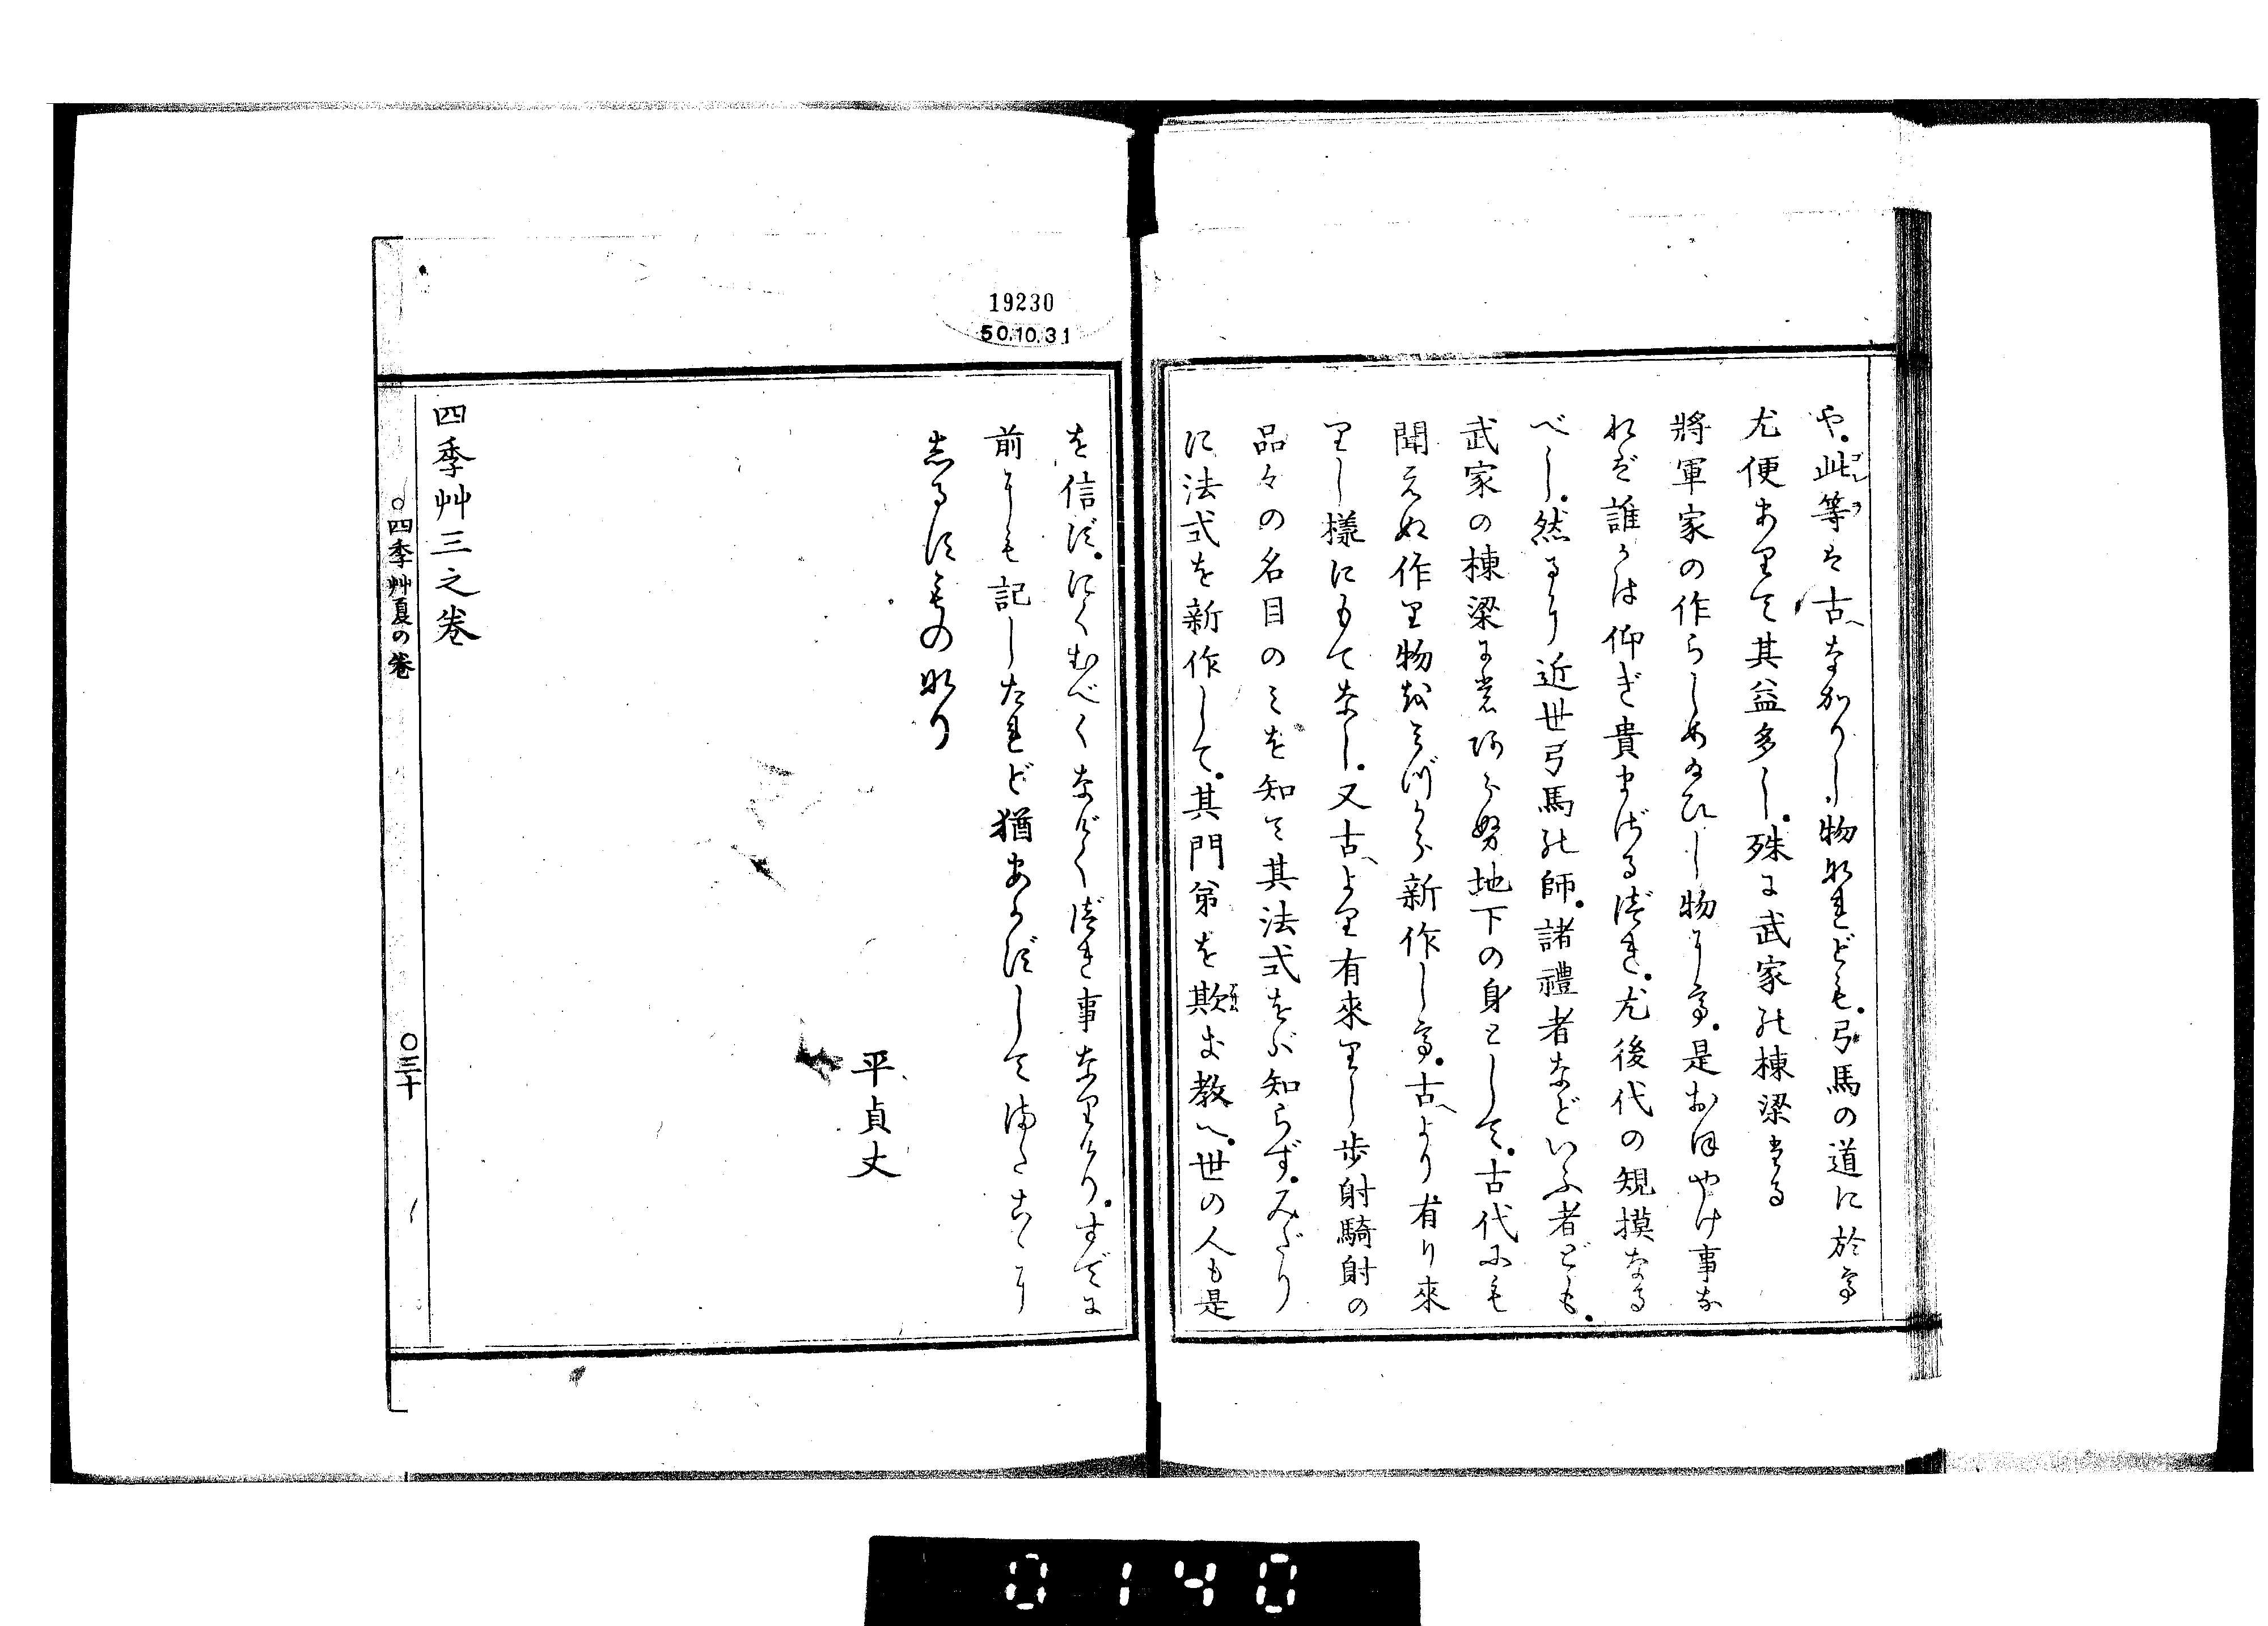 や。此等は古へなかりし物なれども。弓馬の道に於て
尤便ありて其益多し。殊に武家の棟梁たる
將軍家の作らしめ給ひし物にて。是おほやけ事な
れば誰かは仰ぎ貴まざるべき。尤後代の規摸なる
べし。然るに近世弓馬の師。諸禮者などいふ者ども。
武家の棟梁にもあらぬ地下の身として。古代にも
聞えぬ作り物をみづから新作して。古へより有り來
りし樣にもてなし。又古へより有來りし歩射騎射の
品々の名目のミを知て其法式をば知らず。みだり
に法式を新作して。其門弟を欺き教へ。世の人も是
を信ず。にくむべくなげくべき事なりけり。すでに
前にも記したれど猶あかずしてまたこゝに
志るすものなり
平貞丈
四季艸三之巻
四季艸夏の巻
〇三十
19230
50.10.31
0140